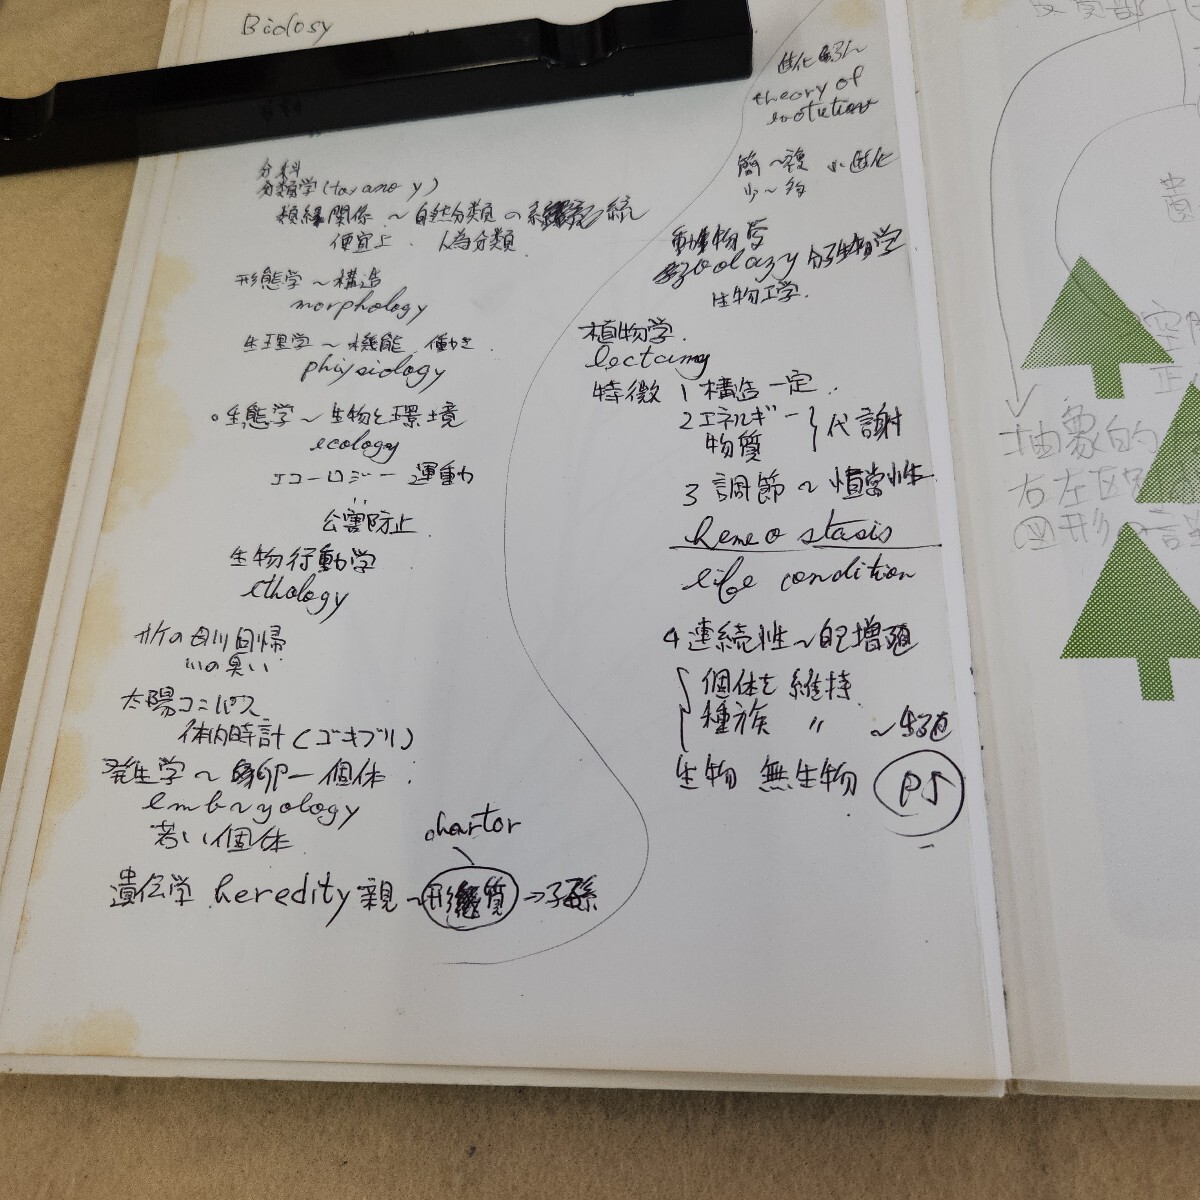 Biolosy
分科
分類学(taxanoy)
類縁関係〜自然分類の系統
便宜上、人為分類
形態学〜構造
morphology
生理学〜機能、働き
phiysiology
生態学〜生物と環境
ecology
エコーロジー運動
公害防止
生物行動学
ethology
サケの母川回帰
川の臭い
太陽コンパス
体内時計(ゴキブリ)
発生学〜卵ー個体
embryology
若い個体
遺伝学 heredity 親〜形質→子孫
進化
theory of
簡〜複 進化
少〜多
動物学
分子生物学
生物工学.
植物学.
特徴 1 構造一定.
2エネルギー
物質
代謝
3 調節〜恒常性
homeo stasis
life condition
4 連続性〜自己増殖
個体を維持
種族 〃 〜生殖
生物 無生物
P5
抽象的
右左区
図形